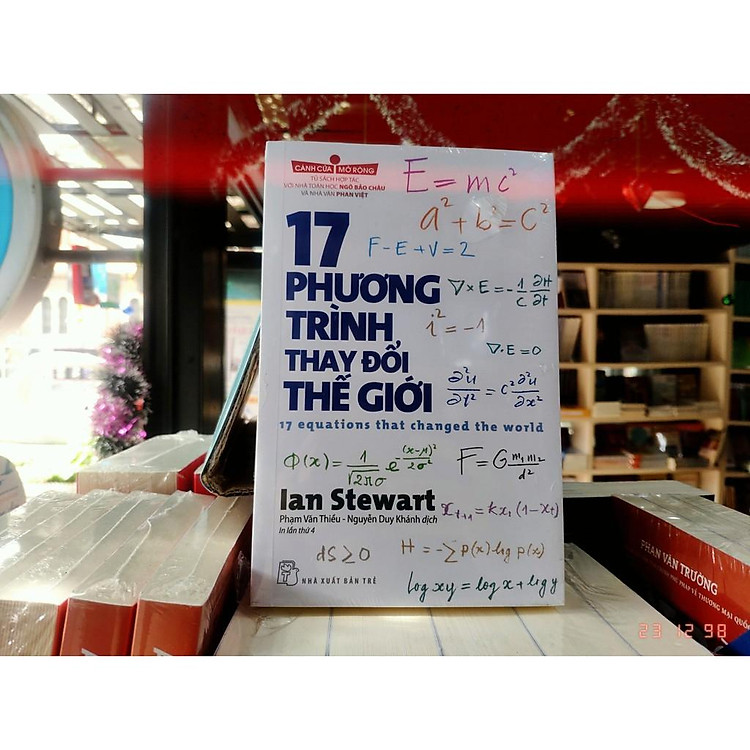 CÁNH CỬA MỞ RỘNG
TỦ SÁCH HỢP TÁC
VỚI NHÀ TOÁN HỌC NGÔ BẢO CHÂU
VÀ NHÀ VĂN PHAN VIỆT
E = mc²
a² + b² = c²
17
F - E + V = 2
PHƯƠNG
∇×E = -1/c ∂H/∂t
TRÌNH
i² = -1
THAY ĐỔI
∇·E = 0
THẾ GIỚI
∂²u/∂t² = c² ∂²u/∂x²
17 equations that changed the world
Φ(x) = 1/√2πσ e^-(x-μ)²/2σ²
F = G m₁m₂/d²
Ian Stewart
xₜ₊₁ = kxₜ(1-xₜ)
Phạm Văn Thiều - Nguyễn Duy Khánh dịch
In lần thứ 4
dS ≥ 0
H = -∑ p(x) log p(x)
NHÀ XUẤT BẢN TRẺ
log xy = log x + log y
PHAN VĂN TRƯỜNG
23 12 98